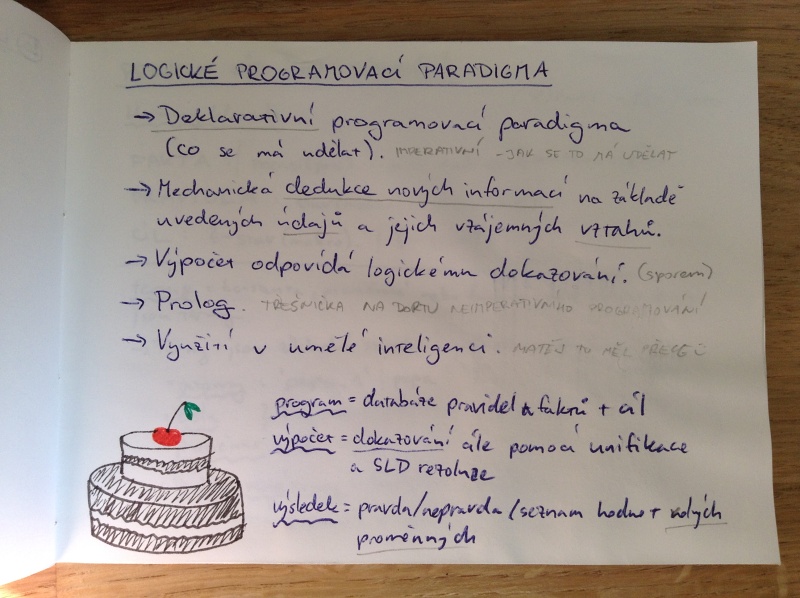 LOGICKÉ PROGRAMOVACÍ PARADIGMA
→ Deklarativní programovací paradigma
(co se má udělat). IMPERATIVNÍ - JAK SE TO MÁ UDĚLAT
→ Mechanická dedukce nových informací na základě
uvedených údajů a jejich vzájemných vztahů.
→ Výpočet odpovídá logickému dokazování. (sporem)
→ Prolog. TŘEŠNIČKA NA DORTU NEIMPERATIVNÍHO PROGRAMOVÁNÍ
→ Využití v umělé inteligenci. MATĚJ TU MĚL PŘECE
program = databáze pravidel a faktů + cíl
výpočet = dokazování cíle pomocí unifikace
a SLD rezoluze
výsledek = pravda/nepravda/seznam hodnot volných
proměnných